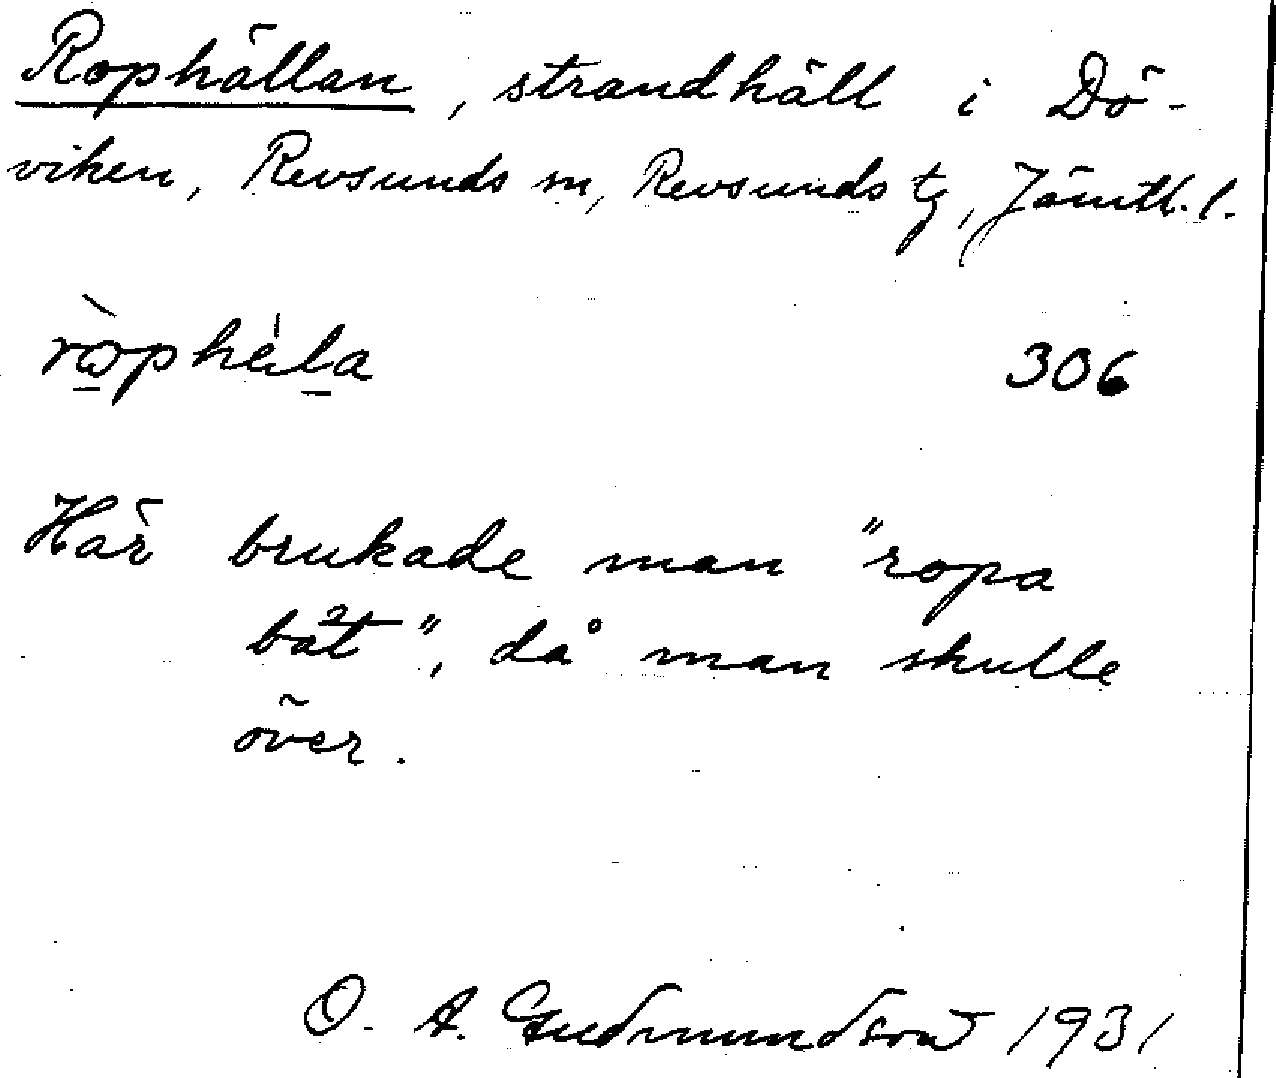 Rophällan, strandhäll i Dö-
viken, Revsunds sn, Revsunds tg, Jämtl. l.
306
Här brukade man "ropa
båt", då man skulle
över.
O. A. Gudmundson 1931